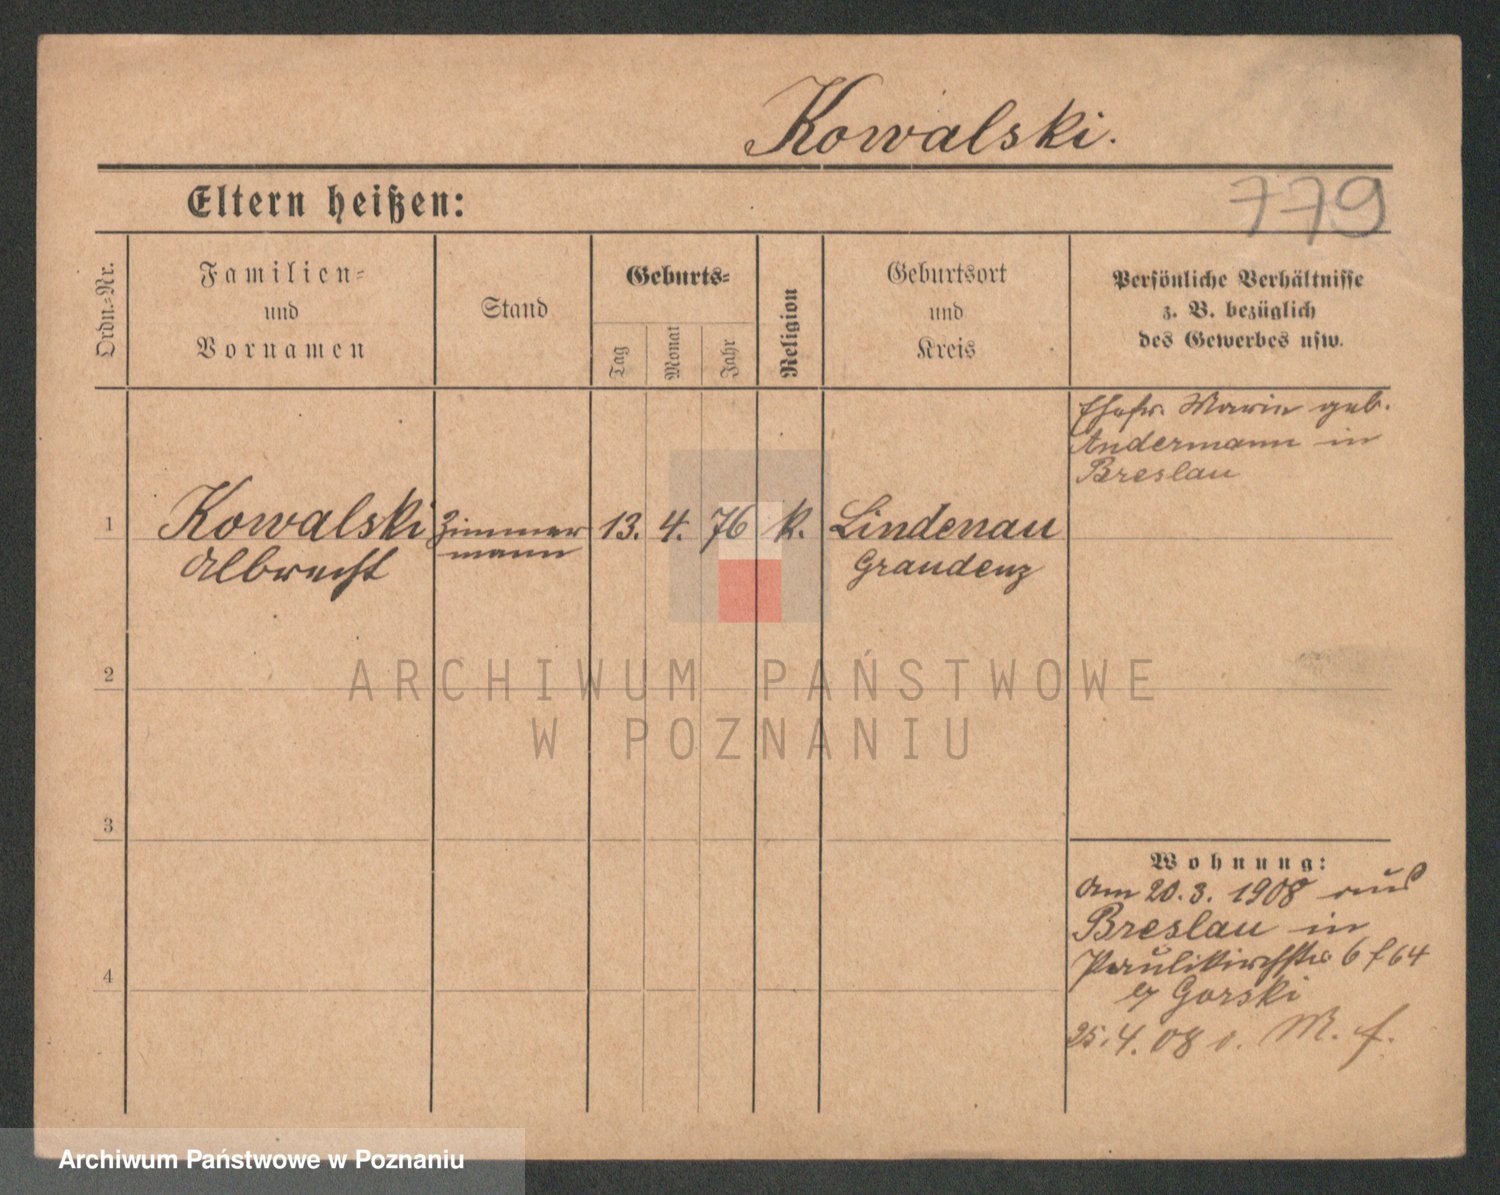 Kowalski.
Eltern heißen:
779
Ordn.=Nr.
Familien=
und
Vornamen
Stand
Geburts=
Tag
Monat
Jahr
Religion
Geburtsort
und
Kreis
Persönliche Verhältnisse
z. B. bezüglich
des Gewerbes usw.
Ehefr. Marie geb.
Andermann in
Breslau
1
Kowalski
Albrecht
Zimmer
mann
13.
4.
76
k.
Lindenau
Graudenz
2
3
4
Wohnung:
Am 20.3. 1908 aus
Breslau in
Paulikirchstr 6
Gorski
25.4.08
ARCHIWUM PAŃSTWOWE
W POZNANIU
Archiwum Państwowe w Poznaniu